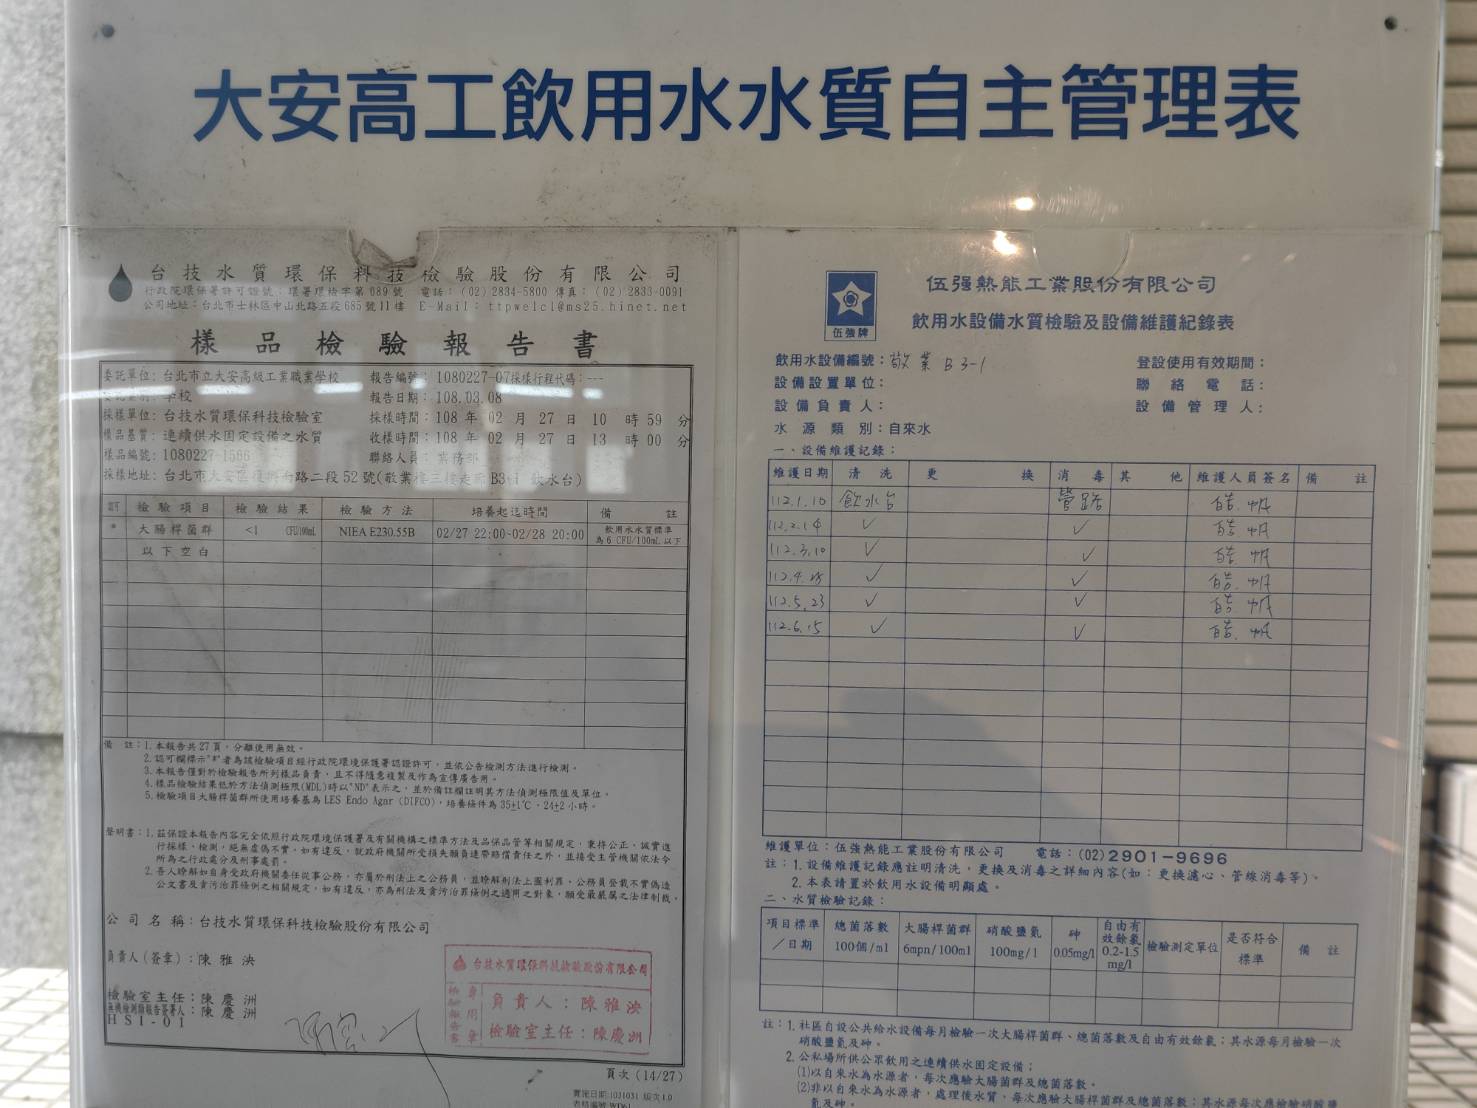 大安高工飲用水水質自主管理表
台技水質環保科技檢驗股份有限公司
行政院環保署許可證號:環署環檢字第089號 電話:(02)2834-5800 傳真:(02)2833-0091
公司地址:台北市士林區中山北路五段685號11樓 E-Mail: ttpwelcl@ms25.hinet.net
樣品檢驗報告書
委託單位:台北市立大安高級工業職業學校 報告編號:1080227-07採樣行程代碼:---
學校 報告日期:108.03.08
採樣單位:台技水質環保科技檢驗室 採樣時間:108 年 02 月 27 日 10 時 59 分
樣品基質:連續供水固定設備之水質 收樣時間:108 年 02 月 27 日 13 時 00 分
樣品編號:1080227-1566 聯絡人員:業務部
採樣地址:台北市大安區復興南路二段52號(敬業樓三樓走廊 B3-1 飲水台)
檢驗項目 檢驗結果 檢驗方法 培養起迄時間 備註
* 大腸桿菌群 <1 CFU/100mL NIEA E230.55B 02/27 22:00~02/28 20:00 飲用水水質標準
為6 CFU/100mL以下
以下空白
備 註:1.本報告共27頁,分離使用無效。
2.認可欄標示"*"者為該檢驗項目經行政院環境保護署認證許可,並依公告檢測方法進行檢測。
3.本報告僅對於檢驗報告所列樣品負責,且不得隨意複製及作為宣傳廣告用。
4.樣品檢驗結果低於方法偵測極限(MDL)時以"ND"表示之,並於備註欄註明其方法偵測極限值及單位。
5.檢驗項目大腸桿菌群所使用培養基為LES Endo Agar (DIFCO),培養條件為35±1℃、24±2小時。
聲明書:1.茲保證本報告內容完全依照行政院環境保護署及有關機構之標準方法及品保品管等相關規定,秉持公正、誠實進
行採樣、檢測,絕無虛偽不實,如有違反,就政府機關所受損失願負連帶賠償責任之外,並接受主管機關依法令
所為之行政處分及刑事處罰。
2.吾人瞭解如自身受政府機關委任從事公務,亦屬於刑法上之公務員,並瞭解刑法上圖利罪、公務員登載不實偽造
公文書及貪污治罪條例之相關規定,如有違反,亦為刑法及貪污治罪條例之適用之對象,願受最嚴厲之法律制裁。
公司名稱:台技水質環保科技檢驗股份有限公司
負責人(簽章):陳雅泱
檢驗室主任:陳慶洲
無機檢測類報告簽署人:陳慶洲
HSI-01
台技水質環保科技檢驗股份有限公司
負責人:陳雅泱
檢驗室主任:陳慶洲
頁次(14/27)
實施日期:1031031 版次1.0
伍強牌
伍強熱能工業股份有限公司
飲用水設備水質檢驗及設備維護紀錄表
飲用水設備編號:敬業 B3-1 登設使用有效期間:
設備設置單位: 聯絡電話:
設備負責人: 設備管理人:
水源類別:自來水
一、設備維護記錄:
維護日期 清洗 更換 消毒 其他 維護人員簽名 備註
112.1.10 飲水台 管路
112.2.14 ✓ ✓
112.3.10 ✓ ✓
112.4.25 ✓ ✓
112.5.23 ✓ ✓
112.6.15 ✓ ✓
維護單位:伍強熱能工業股份有限公司 電話:(02)2901-9696
註:1.設備維護記錄應註明清洗,更換及消毒之詳細內容(如:更換濾心、管線消毒等)。
2.本表請置於飲用水設備明顯處。
二、水質檢驗記錄:
項目標準/日期 總菌落數 100個/ml 大腸桿菌群 6mpn/100ml 硝酸鹽氮 100mg/l 砷 0.05mg/l 自由有效餘氯 0.2-1.5 mg/l 檢驗測定單位 是否符合標準 備註
註:1.社區自設公共給水設備每月檢驗一次大腸桿菌群、總菌落數及自由有效餘氯;其水源每月檢驗一次
硝酸鹽氮及砷。
2.公私場所供公眾飲用之連續供水固定設備;
(1)以自來水為水源者,每次應驗大腸桿菌群及總菌落數。
(2)非以自來水為水源者,處理後水質,每次應驗大腸桿菌群及總菌落數;其水源每次應檢驗硝酸鹽
氮及砷。